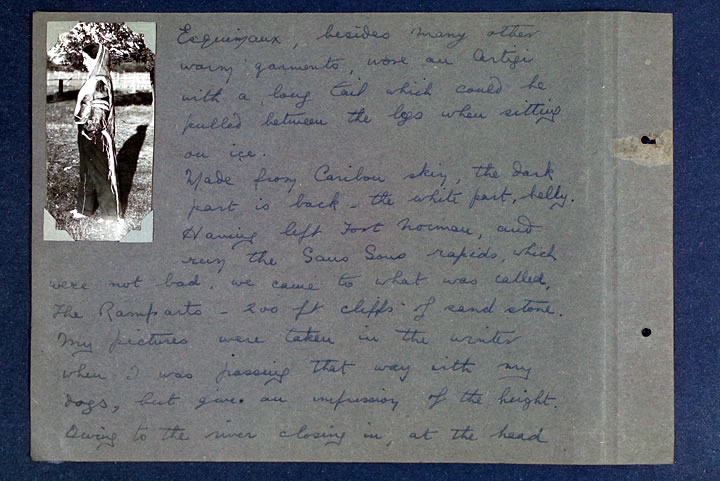 Esquimaux, besides many other
warm garments, wore an Artigi
with a long tail which could be
pulled between the legs when sitting
on ice.
Made from Caribou skin, the dark
part is back - the white part, belly.
Having left Fort Norman, and
run the Sans Sous rapids, which
were not bad, we came to what was called,
The Ramparts - 200 ft cliffs of sand stone.
My pictures were taken in the winter
when I was passing that way with my
dogs, but give an impression of the height.
Owing to the river closing in, at the head